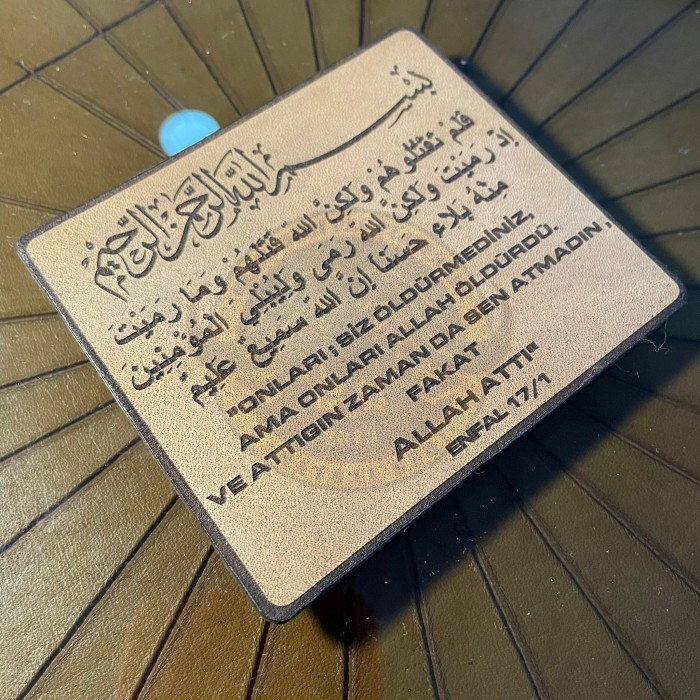 بسم الله الرحمن الرحيم
فَلَمْ تَقْتُلُوهُمْ وَلَكِنَّ اللَّهَ قَتَلَهُمْ وَمَا رَمَيْتَ
إِذْ رَمَيْتَ وَلَكِنَّ اللَّهَ رَمَى وَلِيُبْلِيَ الْمُؤْمِنِينَ
مِنْهُ بَلَاءً حَسَنًا إِنَّ اللَّهَ سَمِيعٌ عَلِيمٌ
"ONLARI ; SİZ ÖLDÜRMEDİNİZ,
AMA ONLARI ALLAH ÖLDÜRDÜ.
VE ATTIGIN ZAMAN DA SEN ATMADIN ,
FAKAT
ALLAH ATTI"
ENFAL 17/1